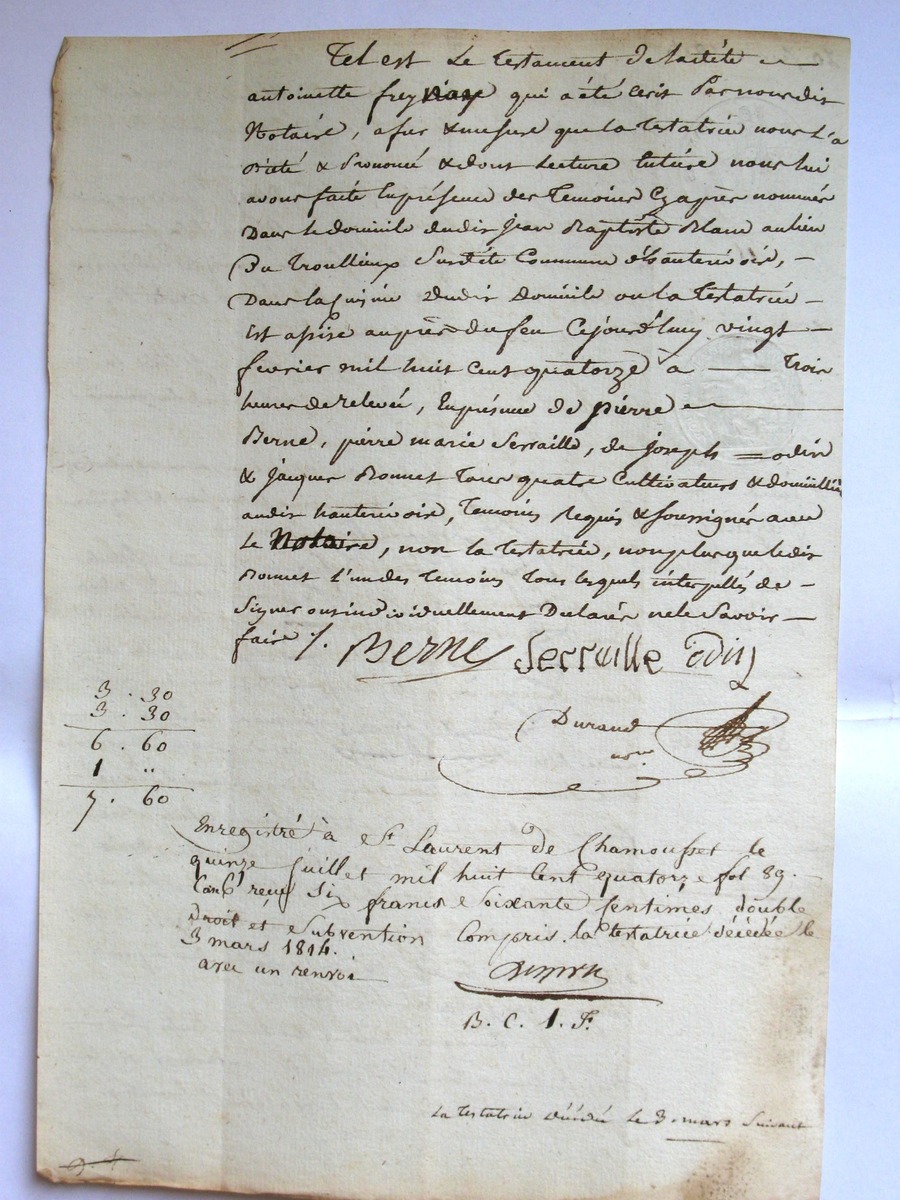 Tel est Le testament de ladéte
antoinette freynay qui a été Ecrit Par nous dit
Notaire, a fur & mesure que la testatrice nous L'a
Dicté & Prononcé & dont Lecture Entière nous lui
avons faite En présence des Temoins Cy après nommés
Dans le domicile dudit Jean Baptiste Blanc au lieu
Du Troullieux Susdéte Commune d'hauterivoire,
Dans la Cuisine dudit Domicile ou la Testatrice
Est assise auprès du feu Cejourd'huy vingt
fevrier mil huit cent quatorze a Trois
heures de relevée, En présence de pierre
Berne, pierre marie Serraille, de joseph odin
& jacques Bonnet Tous quatre Cultivateurs & domiciliés
audit hauterivoire, Temoins Requis & soussignés avec
Le Notaire, non la Testatrice, non plus que ledit
Bonnet L'un des Temoins Tous lesquels interpellés de
Signer ont individuellement Déclarés ne le Savoir
faire /.
Berne Serraille Odin
Durand
nre
3 . 30
3 . 30
6 . 60
1 ..
7 . 60
Enregistré à St Laurent de Chamousset le
quinze Juillet mil huit Cent quatorze fol 89.
reçu Six francs Soixante Centimes double
Droit et Subvention Compris. la testatrice décédée le
3 mars 1814.
avec un renvoi
B. C. 1. F.
La testatrice Décédée Le 3. mars Suivant